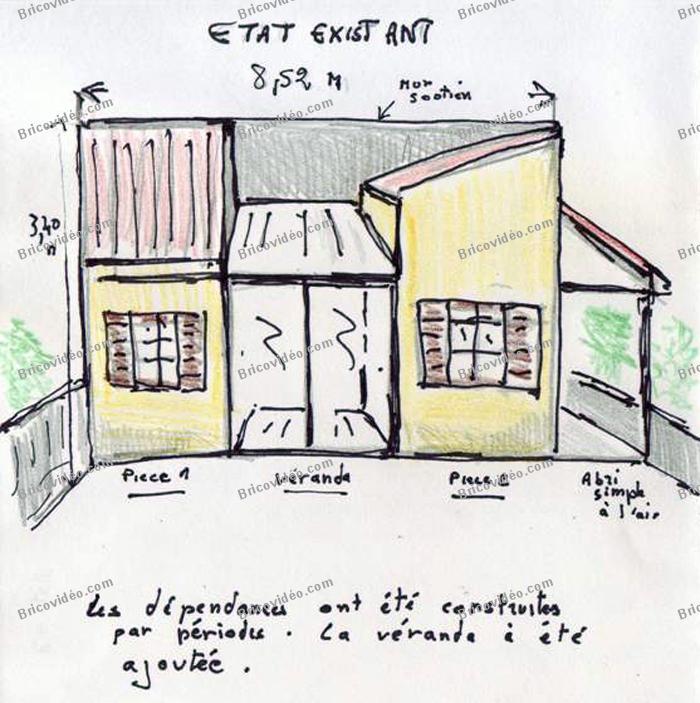 ETAT EXISTANT
8,52 M
Mur
soutien
3,40
m
Piece 1
Véranda
Piece 2
Abri
simple
à l'air
Les dépendances ont été construites
par périodes. La véranda à été
ajoutée.
Bricovidéo.com